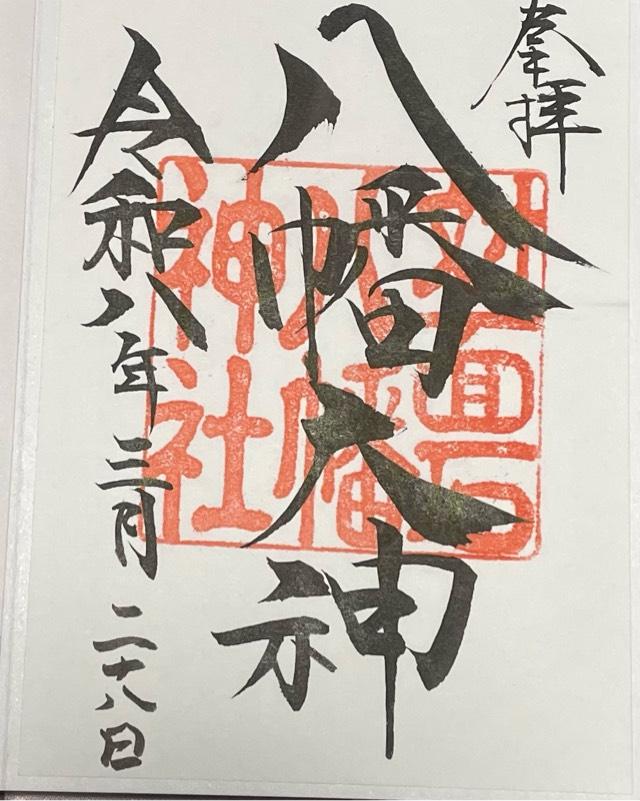 奉拝
八幡大神
令和八年三月二十八日
八幡
神社